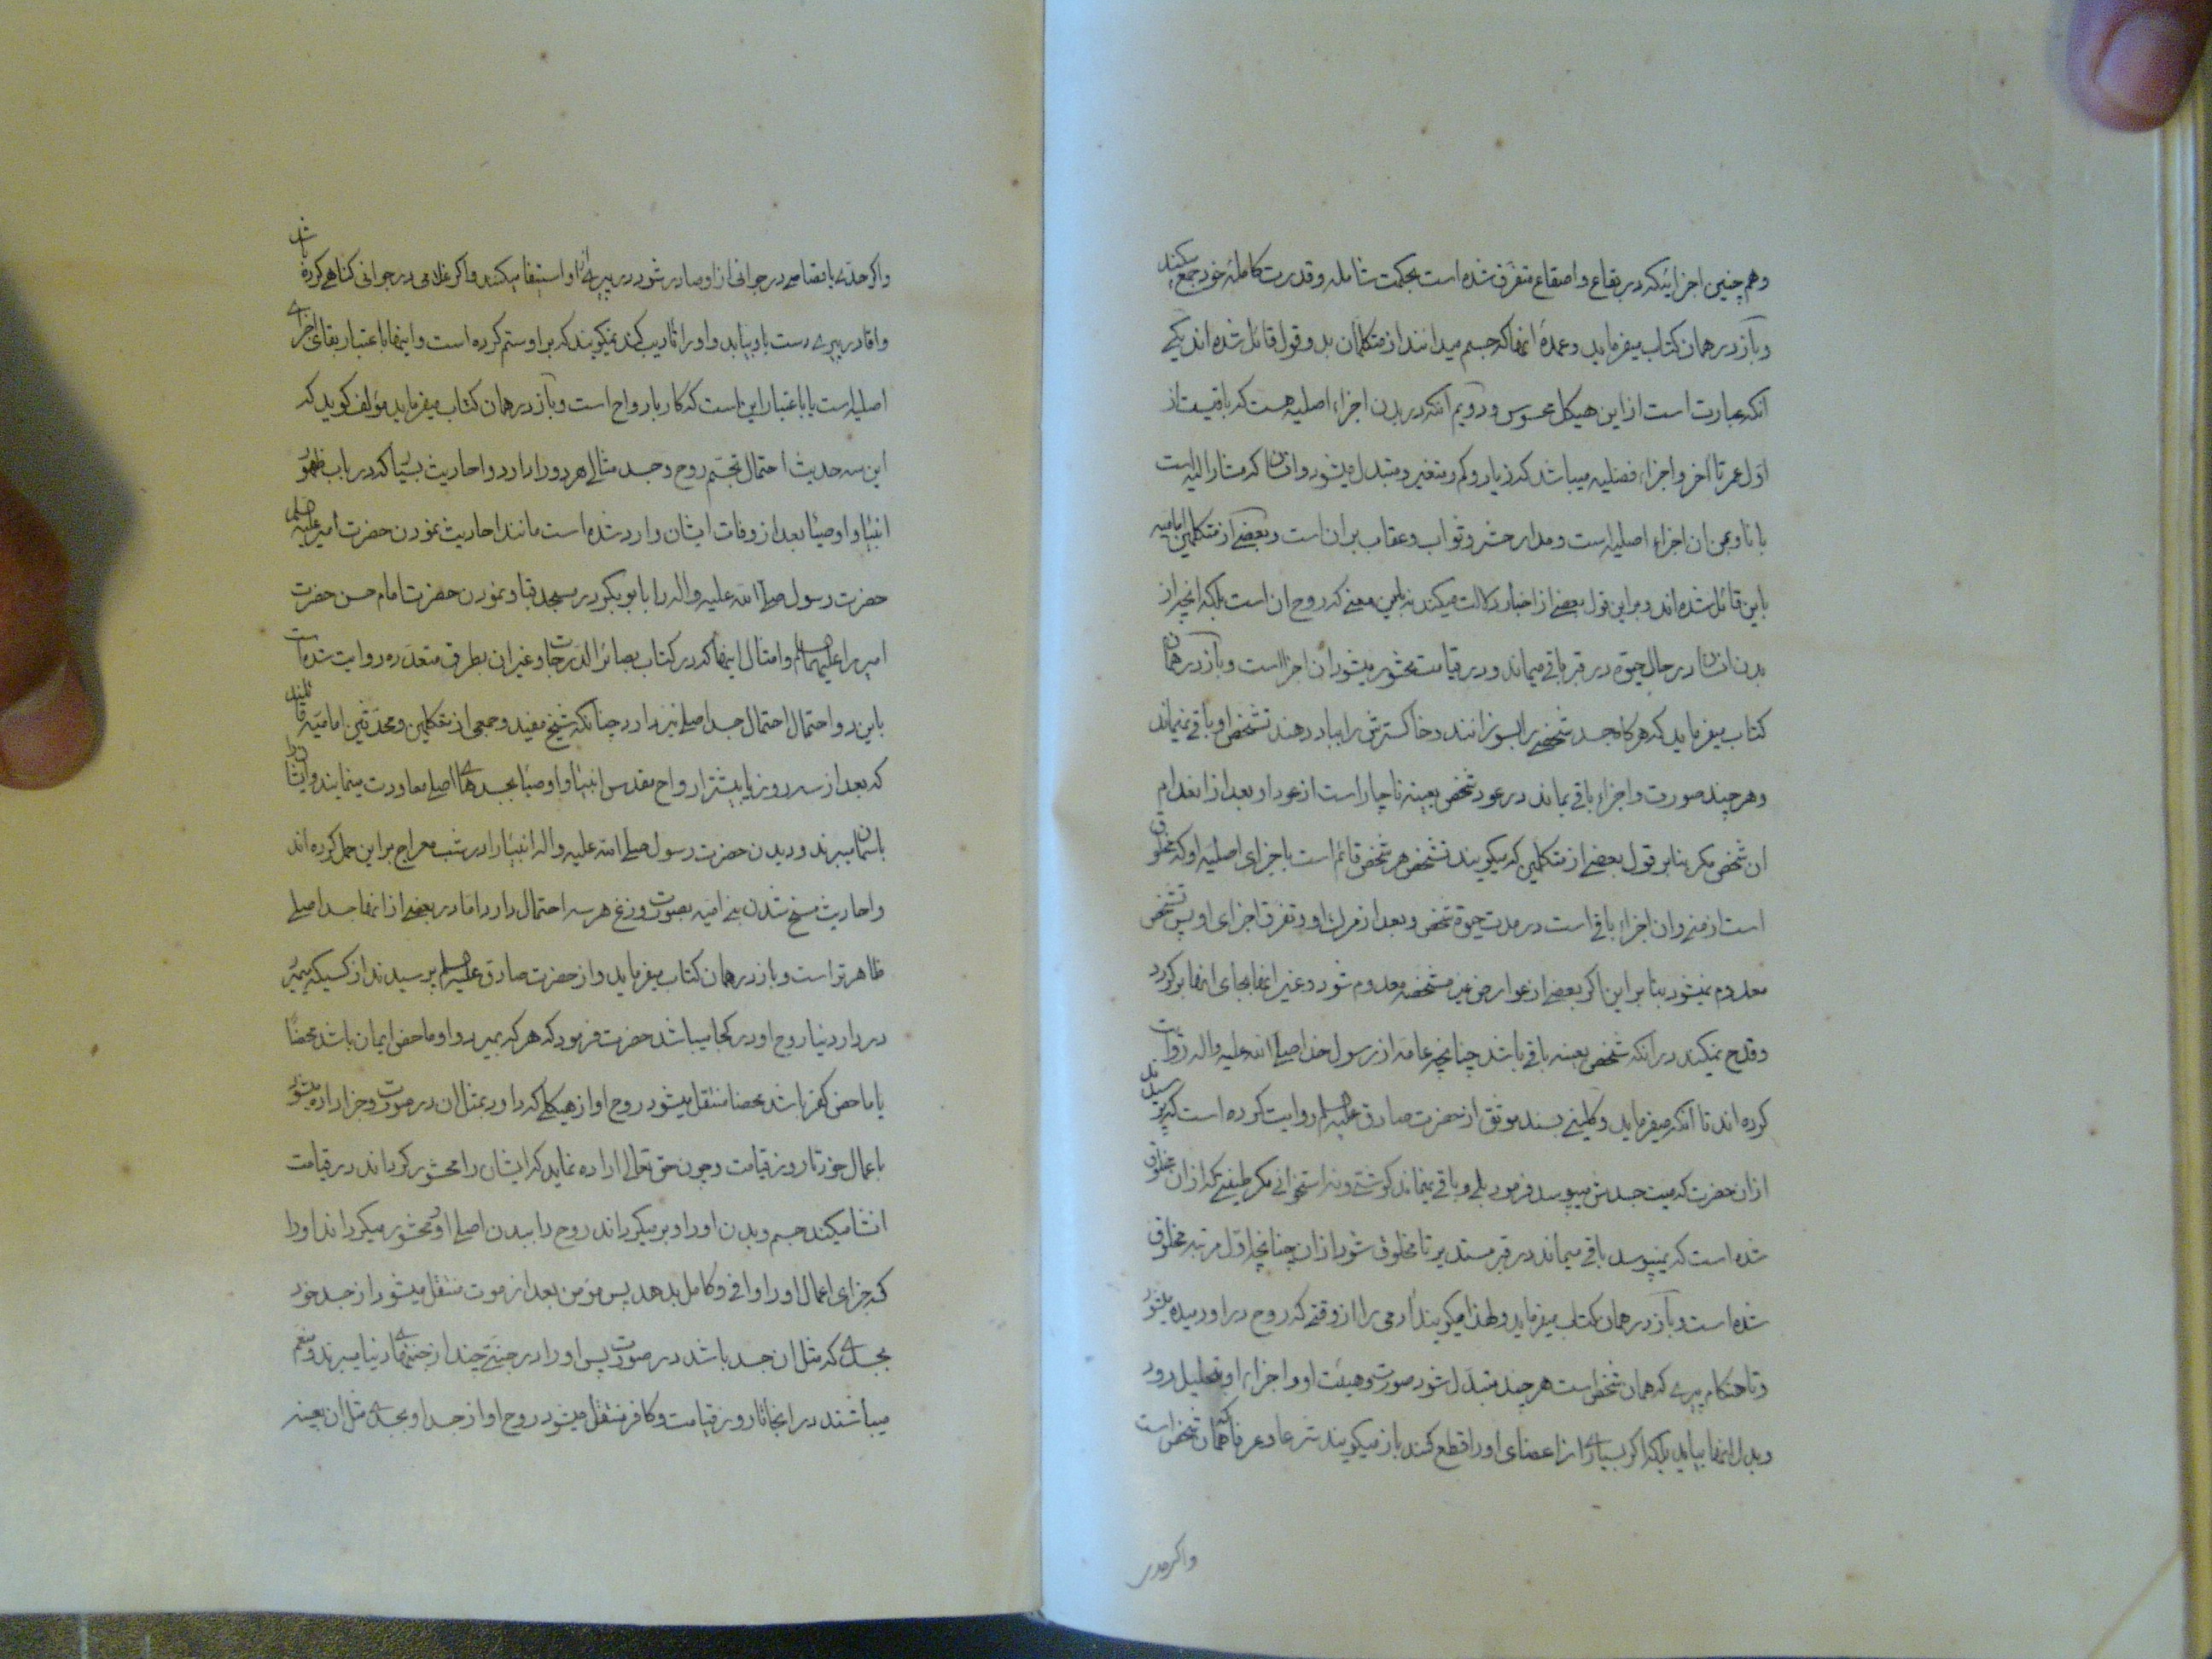 وهم چنین اجزائیکه در بقاع و اصقاع متفرق شده است بحکمت شامله و قدرت کامله خود جمع میکند
و باز در همان کتاب میفرماید و عمدهٔ انها که جسم میدانند از متکلمان بدو قول قائل شده اند یکے
انکه عبارت است از این هیکل محسوس و دویم آنکه در بدن اجزاء اصلیه هست که باقیست از
اول عمر تا آخر و اجزاء فضلیه میباشد که زیاد و کم و متغیر و متبدل میشود و انسان که مشار الیه است
بانا و بمن ان اجزاء اصلیه است و مدار حشر و ثواب و عقاب بران است و بعضے از متکلمین امامیه
باین قائل شده اند و بر این قول بعضے از اخبار دلالت میکند نه باین معنے که روح ان است بلکه انچه از
بدن انسان در حال حیوة در قبر باقے میماند و در قیامت محشور میشود ان اجزا است و باز در همان
کتاب میفرماید که هرگاه جسد شخصے را بسوزانند و خاکسترش را بباد دهند تشخص او باقے نمیماند
و هر چند صورت و اجزاء باقے بماند در عود شخص بعینه ناچار است از عود او بعد از انعدام
ان شخص مکر بنا بر قول بعضے از متکلمین که میکویند تشخص هر شخص قائم است باجزای اصلیه او که مخلوق
است از منے و ان اجزاء باقے است در مدت حیوة شخص و بعد از مرک او و تفرق اجزای او پس تشخص
معدوم نمیشود بنا بر این اکر بعضے از عوارض غیر مشخصه معدوم شود و غیر انها بجای انها برکردد
و قدح نمیکند در انکه شخص بعینه باقے باشد چنانچه عامه از رسول خدا صلے الله علیه واله روایت
کرده اند تا آنکه میفرماید و کلینے بسند موثق از حضرت صادق علیه السلم روایت کرده است که پرسیدند
از ان حضرت که میت جسدش میپوسد فرمود بلے و باقے نمیماند کوشتے و نه استخوانے مکر طینتے که از ان مخلوق
شده است که نمیپوسد باقے میماند در قبر مستدیر تا مخلوق شود از ان چنانچه اول مرتبه مخلوق
شده است و باز در همان کتاب میفرماید و لهذا میکویند آدمی را از وقتے که روح در او دمیده میشود
و تا هنکام پیرے که همان شخص است هر چند متبدل شود صورت و هیئت او و اجزاء او بتحلیل رود
و بدل انها بیاید بلکه اکر بسیارے از اعضای او را قطع کنند باز میکویند شرعا و عرفا که همان شخص است
واکر حدے یا قصاصے در جوانی از او صادر شود در پیرے از او استیفا میکنند و اکر غلامی در جوانی کناهے کرده باشد
و اقا در پیرے دست باو بیابد و او را تادیب کند نمیکویند که بر او ستم کرده است و اینها باعتبار بقای اجزاے
اصلیه است یا باعتبار این است که کار با رواح است و باز در همان کتاب میفرماید مؤلف کوید که
این سه حدیث احتمال تجسم روح و جسد مثالے هر دو را دارد و احادیث بسیار که در باب ظهور
انبیا و اوصیا بعد از وفات ایشان وارد شده است مانند احادیث نمودن حضرت امیر علیه السلم
حضرت رسول صلے الله علیه واله را بابو بکر در مسجد قبا و نمودن حضرت امام حسن حضرت
امیر را علیهما السلم و امثال اینها که در کتاب بصائر الدرجات و غیر ان بطرق متعدده روایت شده است
باین دو احتمال احتمال جسد اصلے نیز دارد چنانکه شیخ مفید و جمعی از متکلمین و محدثین امامیه قائلند
که بعد از سه روز یا بیشتر ارواح مقدس انبیا و اوصیا بجسدهاے اصلے معاودت مینمایند و ایشان را
باسمان میبرند و دیدن حضرت رسول صلے الله علیه واله انبیا را در شب معراج بر این حمل کرده اند
و احادیث مسخ شدن بنے امیه بصورت وزغ هر سه احتمال دارد اما در بعضے از انها جسد اصلے
ظاهر تر است و باز در همان کتاب میفرماید و از حضرت صادق علیه السلم پرسیدند از کسیکه بمیرد
در دار دنیا روح او در کجا میباشد حضرت فرمود که هر که بمیرد و او ماحض ایمان باشد محضا
یا ماحض کفر باشد محضا منتقل میشود روح او از هیکلے که دارد بمثل ان در صورت و جزا داده میشود
باعمال خود تا روز قیامت و چون حق تعالے اراده نماید که ایشان را محشور کرداند در قیامت
انشا میکند جسم و بدن او را و بر میکرداند روح را ببدن اصلے او و محشور میکرداند او را
که جزای اعمال او را وافے و کامل بدهد پس مؤمن بعد از موت منتقل میشود از جسد خود
بجسدے که مثل ان جسد باشد در صورت پس او را در جنتے چند از جنتهاے دنیا میبرند و متنعم
میباشند در انجا تا روز قیامت و کافر منتقل میشود روح او از جسد او بجسدے مثل ان بعینه